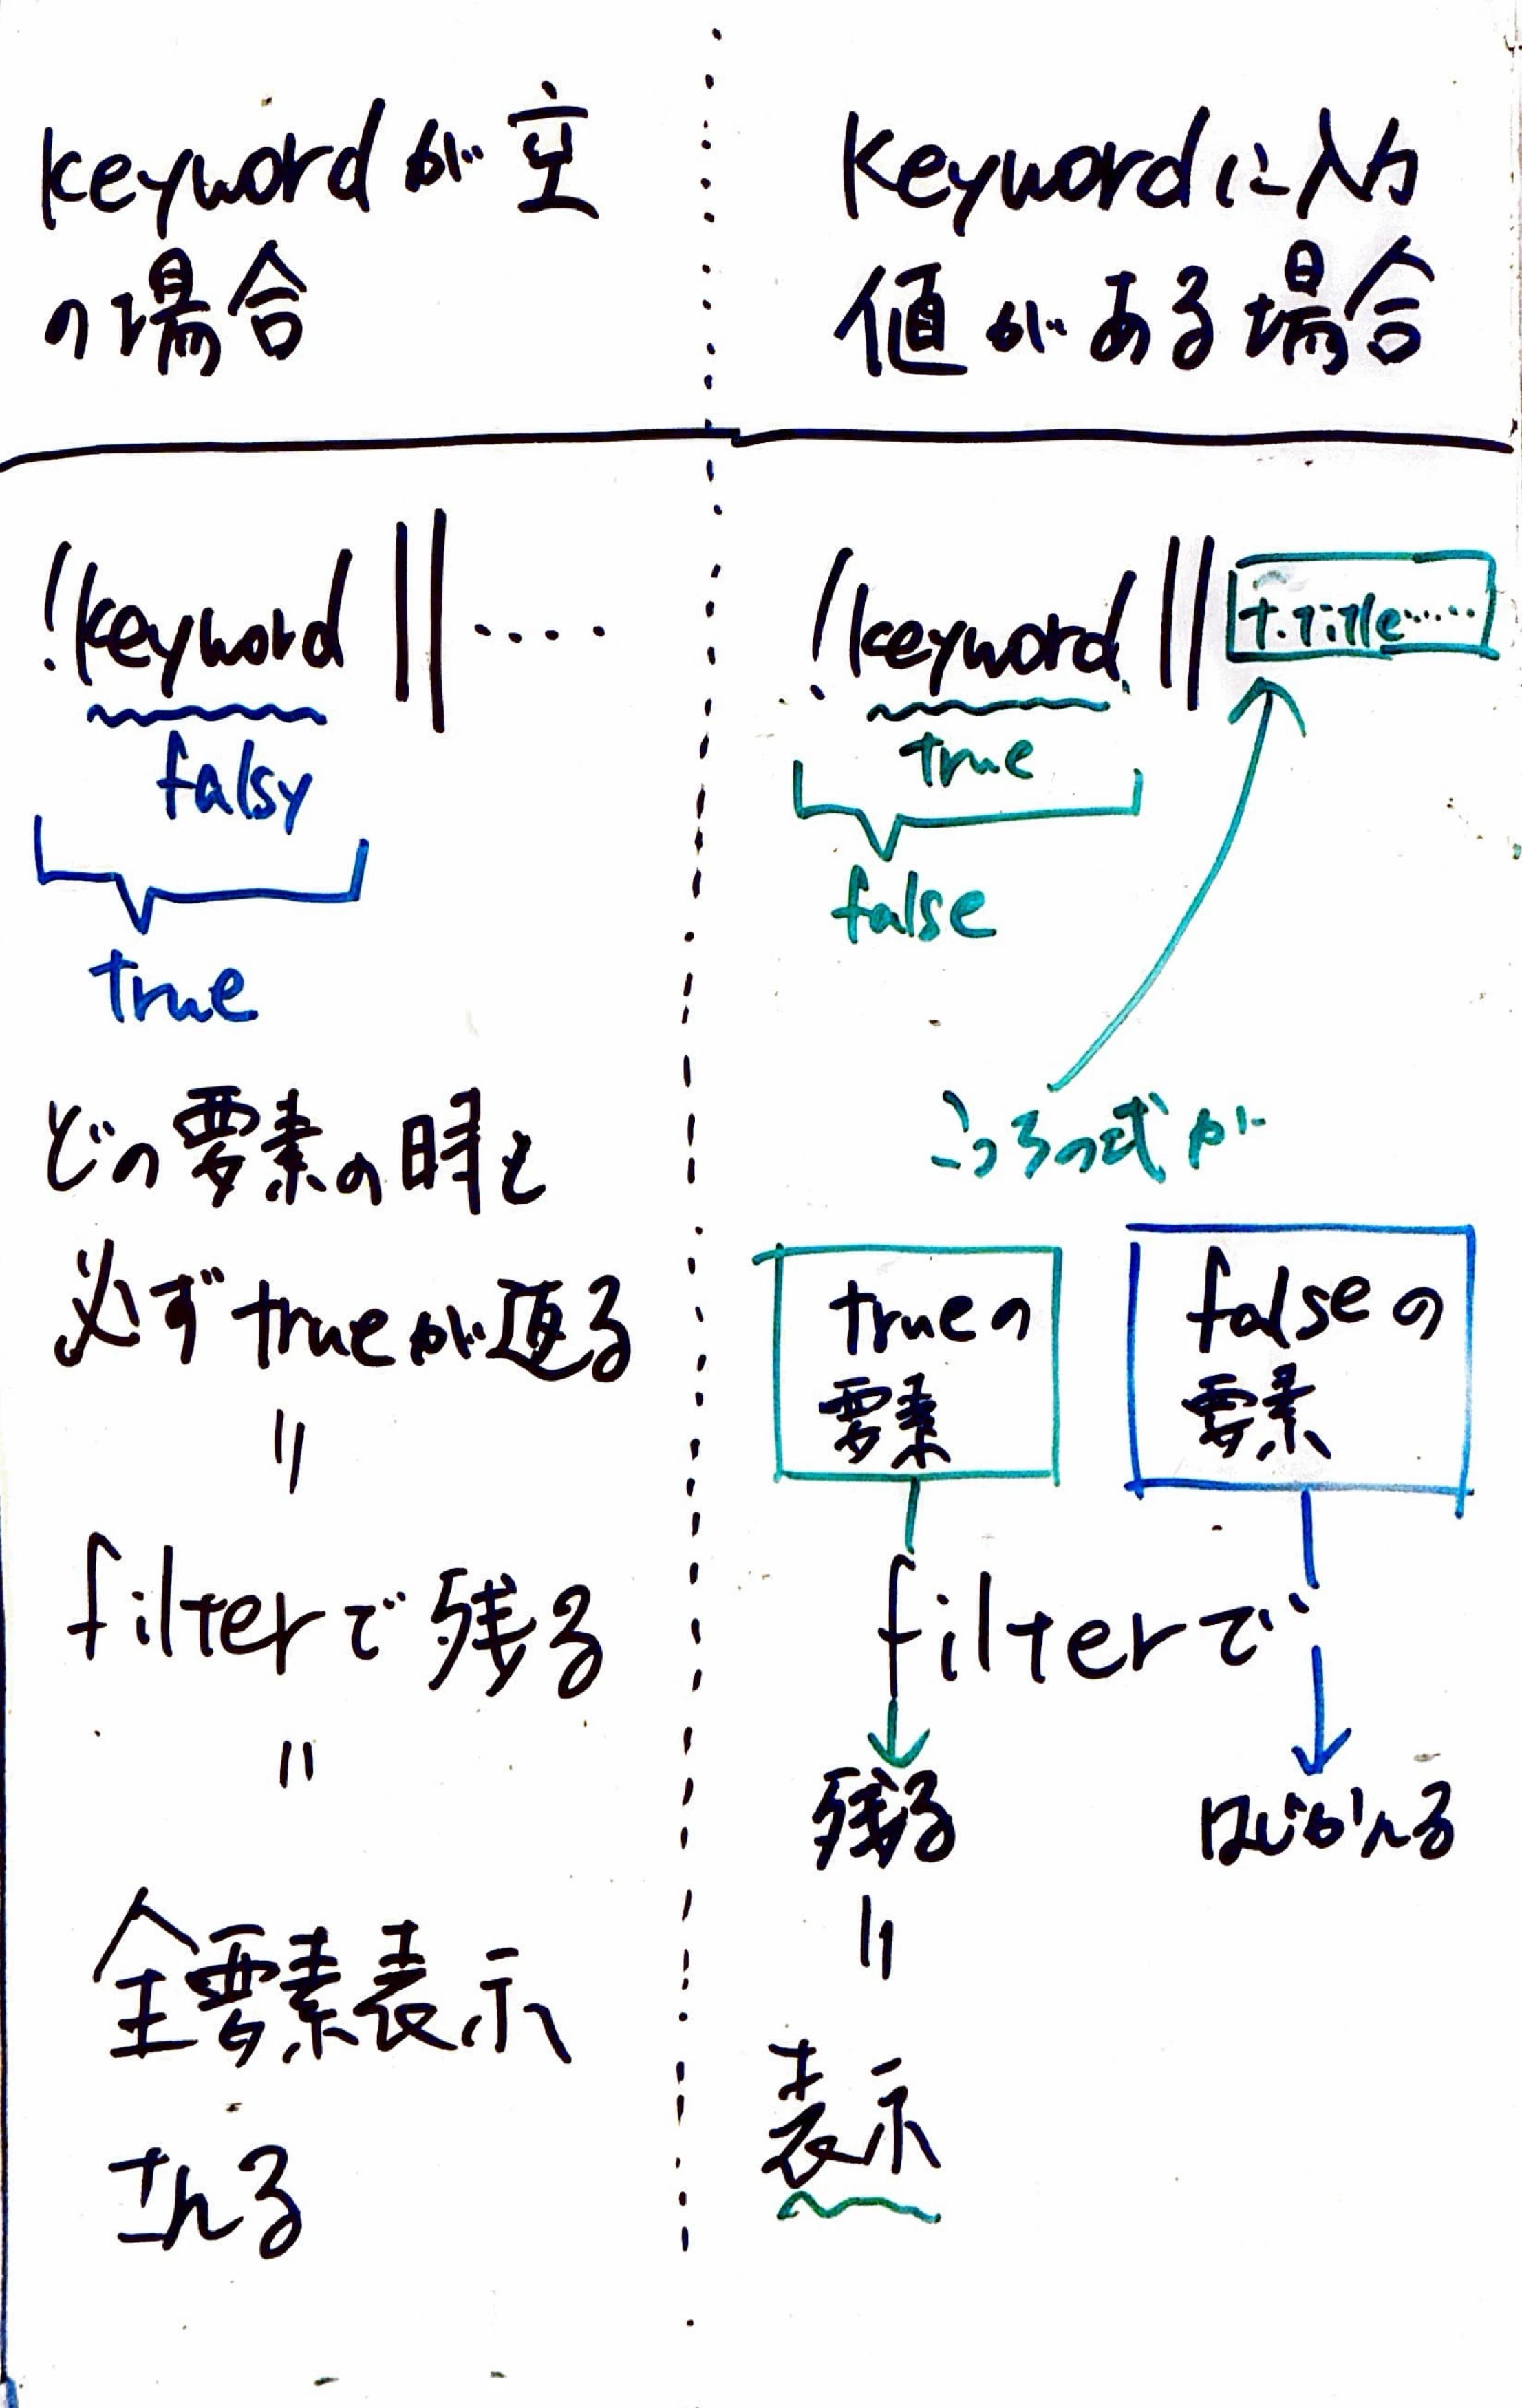 keywordが空
の場合
!keyword || ････
falsy
true
どの要素の時も
必ずtrueが返る
=
filterで残る
=
全要素表示
される
keywordに入力
値がある場合
!keyword || t.title･････
true
false
うしろの式が
trueの
要素
falseの
要素
filterで
残る
はじかれる
=
表示